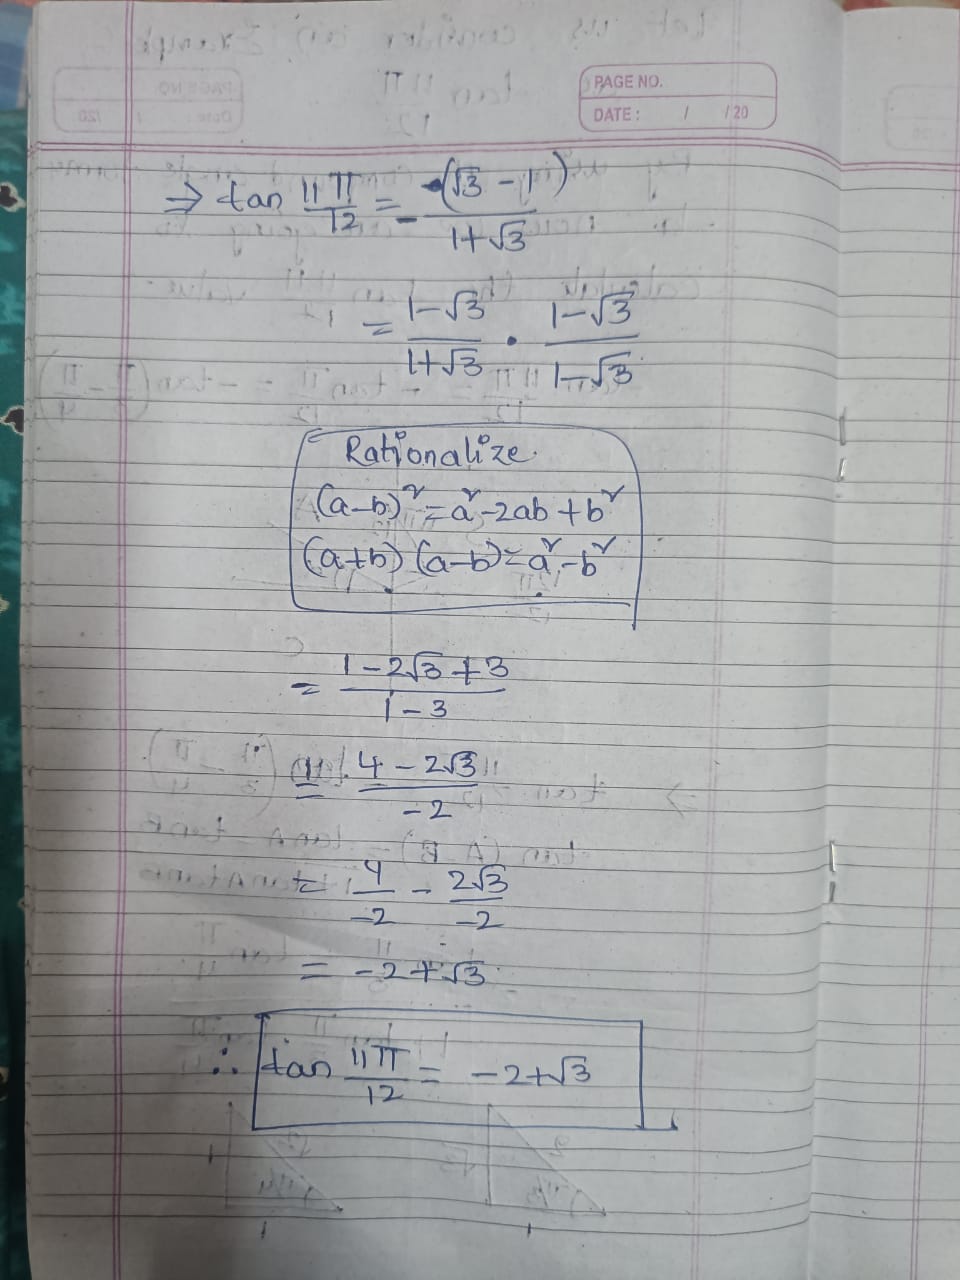 PAGE NO.
DATE : / / 20
⇒ tan 11π/12 = -(√3 - 1)/(1+√3)
= (1-√3)/(1+√3) · (1-√3)/(1-√3)
Rationalize
(a-b)² = a² - 2ab + b²
(a+b) (a-b) = a² - b²
= (1 - 2√3 + 3)/(1 - 3)
= (4 - 2√3)/(-2)
= 4/(-2) - 2√3/(-2)
= -2 + √3
∴ tan 11π/12 = -2+√3